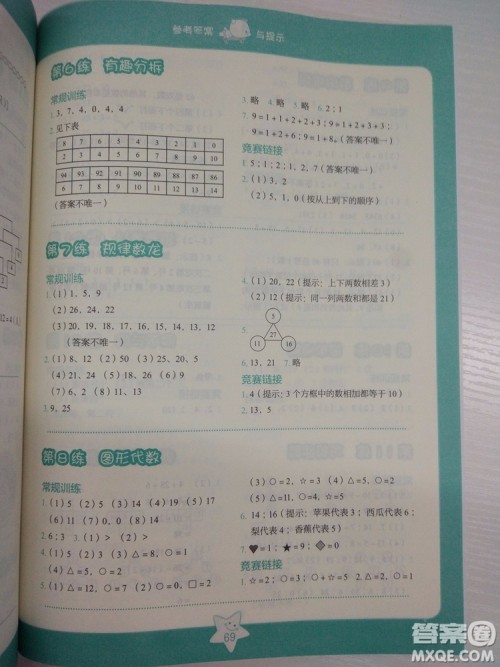 参考答案与提示
第6练 有趣分拆
常规训练
1. 3，7，4，0，4，4
2. 见下表
8 7 6 5 4 3 2 1 0
2 3 4 5 6 7 8 9 10
94 93 92 91 90 89 88 87 86
6 7 8 9 10 11 12 13 14
（答案不唯一）
3. 略 4. 略 5. 略 6. 2；1
7. 9=1+2+2+2+2；9=1+2+3+3；
9=1+2+6；9=1+8。（答案不唯一）
竞赛链接
1. 5；1；2；1，2，7；2，5
2. （1）3，2
（2）5，1，0（按从上到下的顺序）
第7练 规律数龙
常规训练
1. （1）1，5，9
（2）26，24，22
（3）20，19，18，17，16，15，14，13，12
（答案不唯一）
2. （1）8，12 （2）50 （3）25，20，5
（4）21，24 （5）18，26 （6）9
（7）6，2 （8）11，13
3. 9，25
4. （1）20，22（提示：上下两数相差3）
（2）12（提示：同一列两数和都是21）
5.
5
27
11 16
6. 13，21 7. 略
竞赛链接
1. 4（提示：3个方框中的数相加都等于10）
2. 13，5
第8练 图形代数
常规训练
1. （1）5 （2）5 （3）14 （4）19 （5）17
2. 6；3 3. （1）> （2）>
4. （1）5 （2）3 （3）△=8，○=1
（4）△=5，○=2
5. （1）△=12，○=7 （2）○=1，□=2
（3）○=2，☆=3 （4）○=5，△=3
（5）△=11，○=4，☆=5
6. 14；16（提示：苹果代表3；西瓜代表6；
梨代表4；香蕉代表3）
7. ♥=1；★=9；◈=0
竞赛链接
1. ☆=2，○=3 2. △=6，○=3
69
答案圈
MXQE.COM